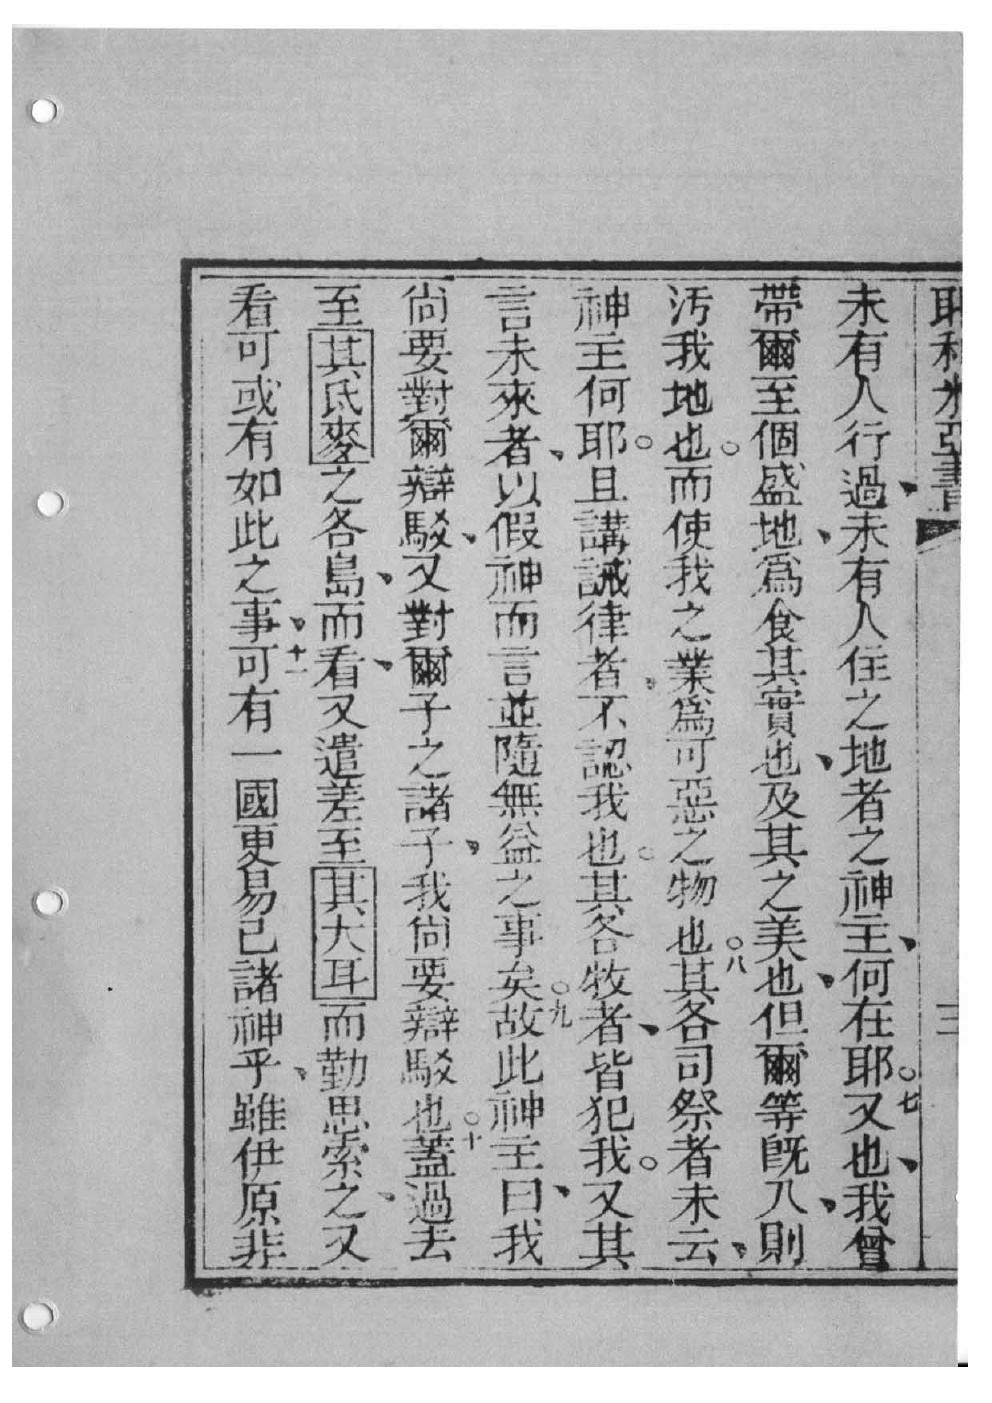 耶利米亞書 二
未有人行過、未有人住之地者之神主、何在耶。七又也、我曾
帶爾至個盛地、爲食其實也、及其之美也、但爾等旣入、則
污我地也。而使我之業爲可惡之物也。八其各司祭者未云、
神主何耶。且講誡律者、不認我也。其各牧者、皆犯我。又其
言未來者、以假神而言並隨無益之事矣。九故此神主曰、我
尙要對爾辯駁、又對爾子之諸子、我尙要辯駁也。十蓋過去
至其氐麥之各島、而看、又遣差至其大耳而勤思索之、又
看可或有如此之事、十一可有一國更易己諸神乎、雖伊原非